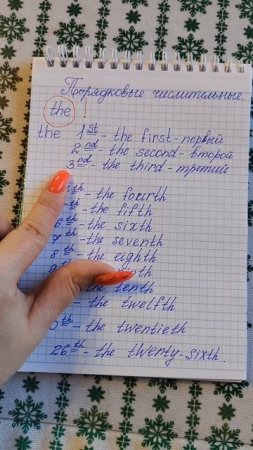 Порядковые числительные.
the !
the 1st - the first - первый
2nd - the second - второй
3nd - the third - третий
th - the fourth
th - the fifth
6th - the sixth
7th - the seventh
8th - the eighth
9th
the tenth
- the twelfth
0th - the twentieth
26th - the twenty-sixth.